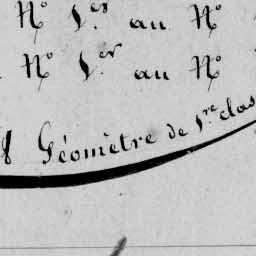 N° 1.er au N°
N° 1.er au N°
Géomètre de 1.re clas